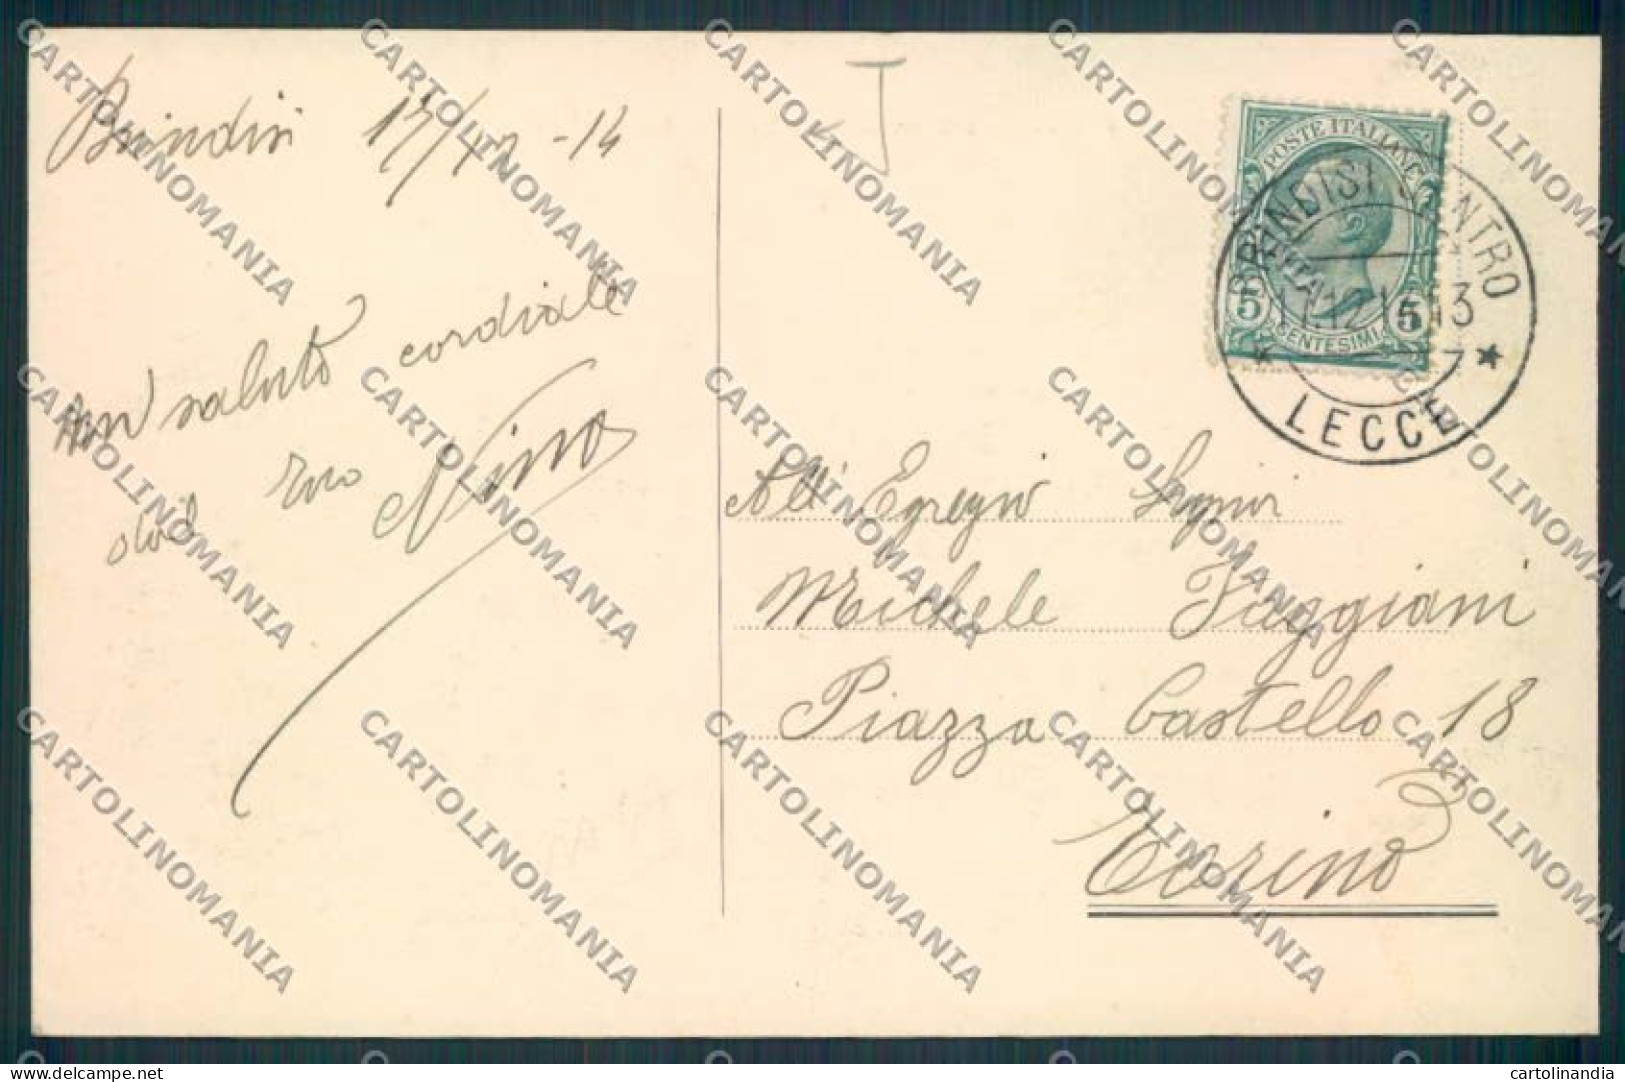 Brindisi 17/12 - 14
T
Un saluto cordiale
dal suo Nino
POSTE ITALIANE
5 5
CENTESIMI
BRINDISI CENTRO
17.12.14.13
LECCE
All' Egregio Signor
Michele Faggiani
Piazza Castello 18
Torino
CARTOLINOMANIA
delcampe.net
cartolinandia